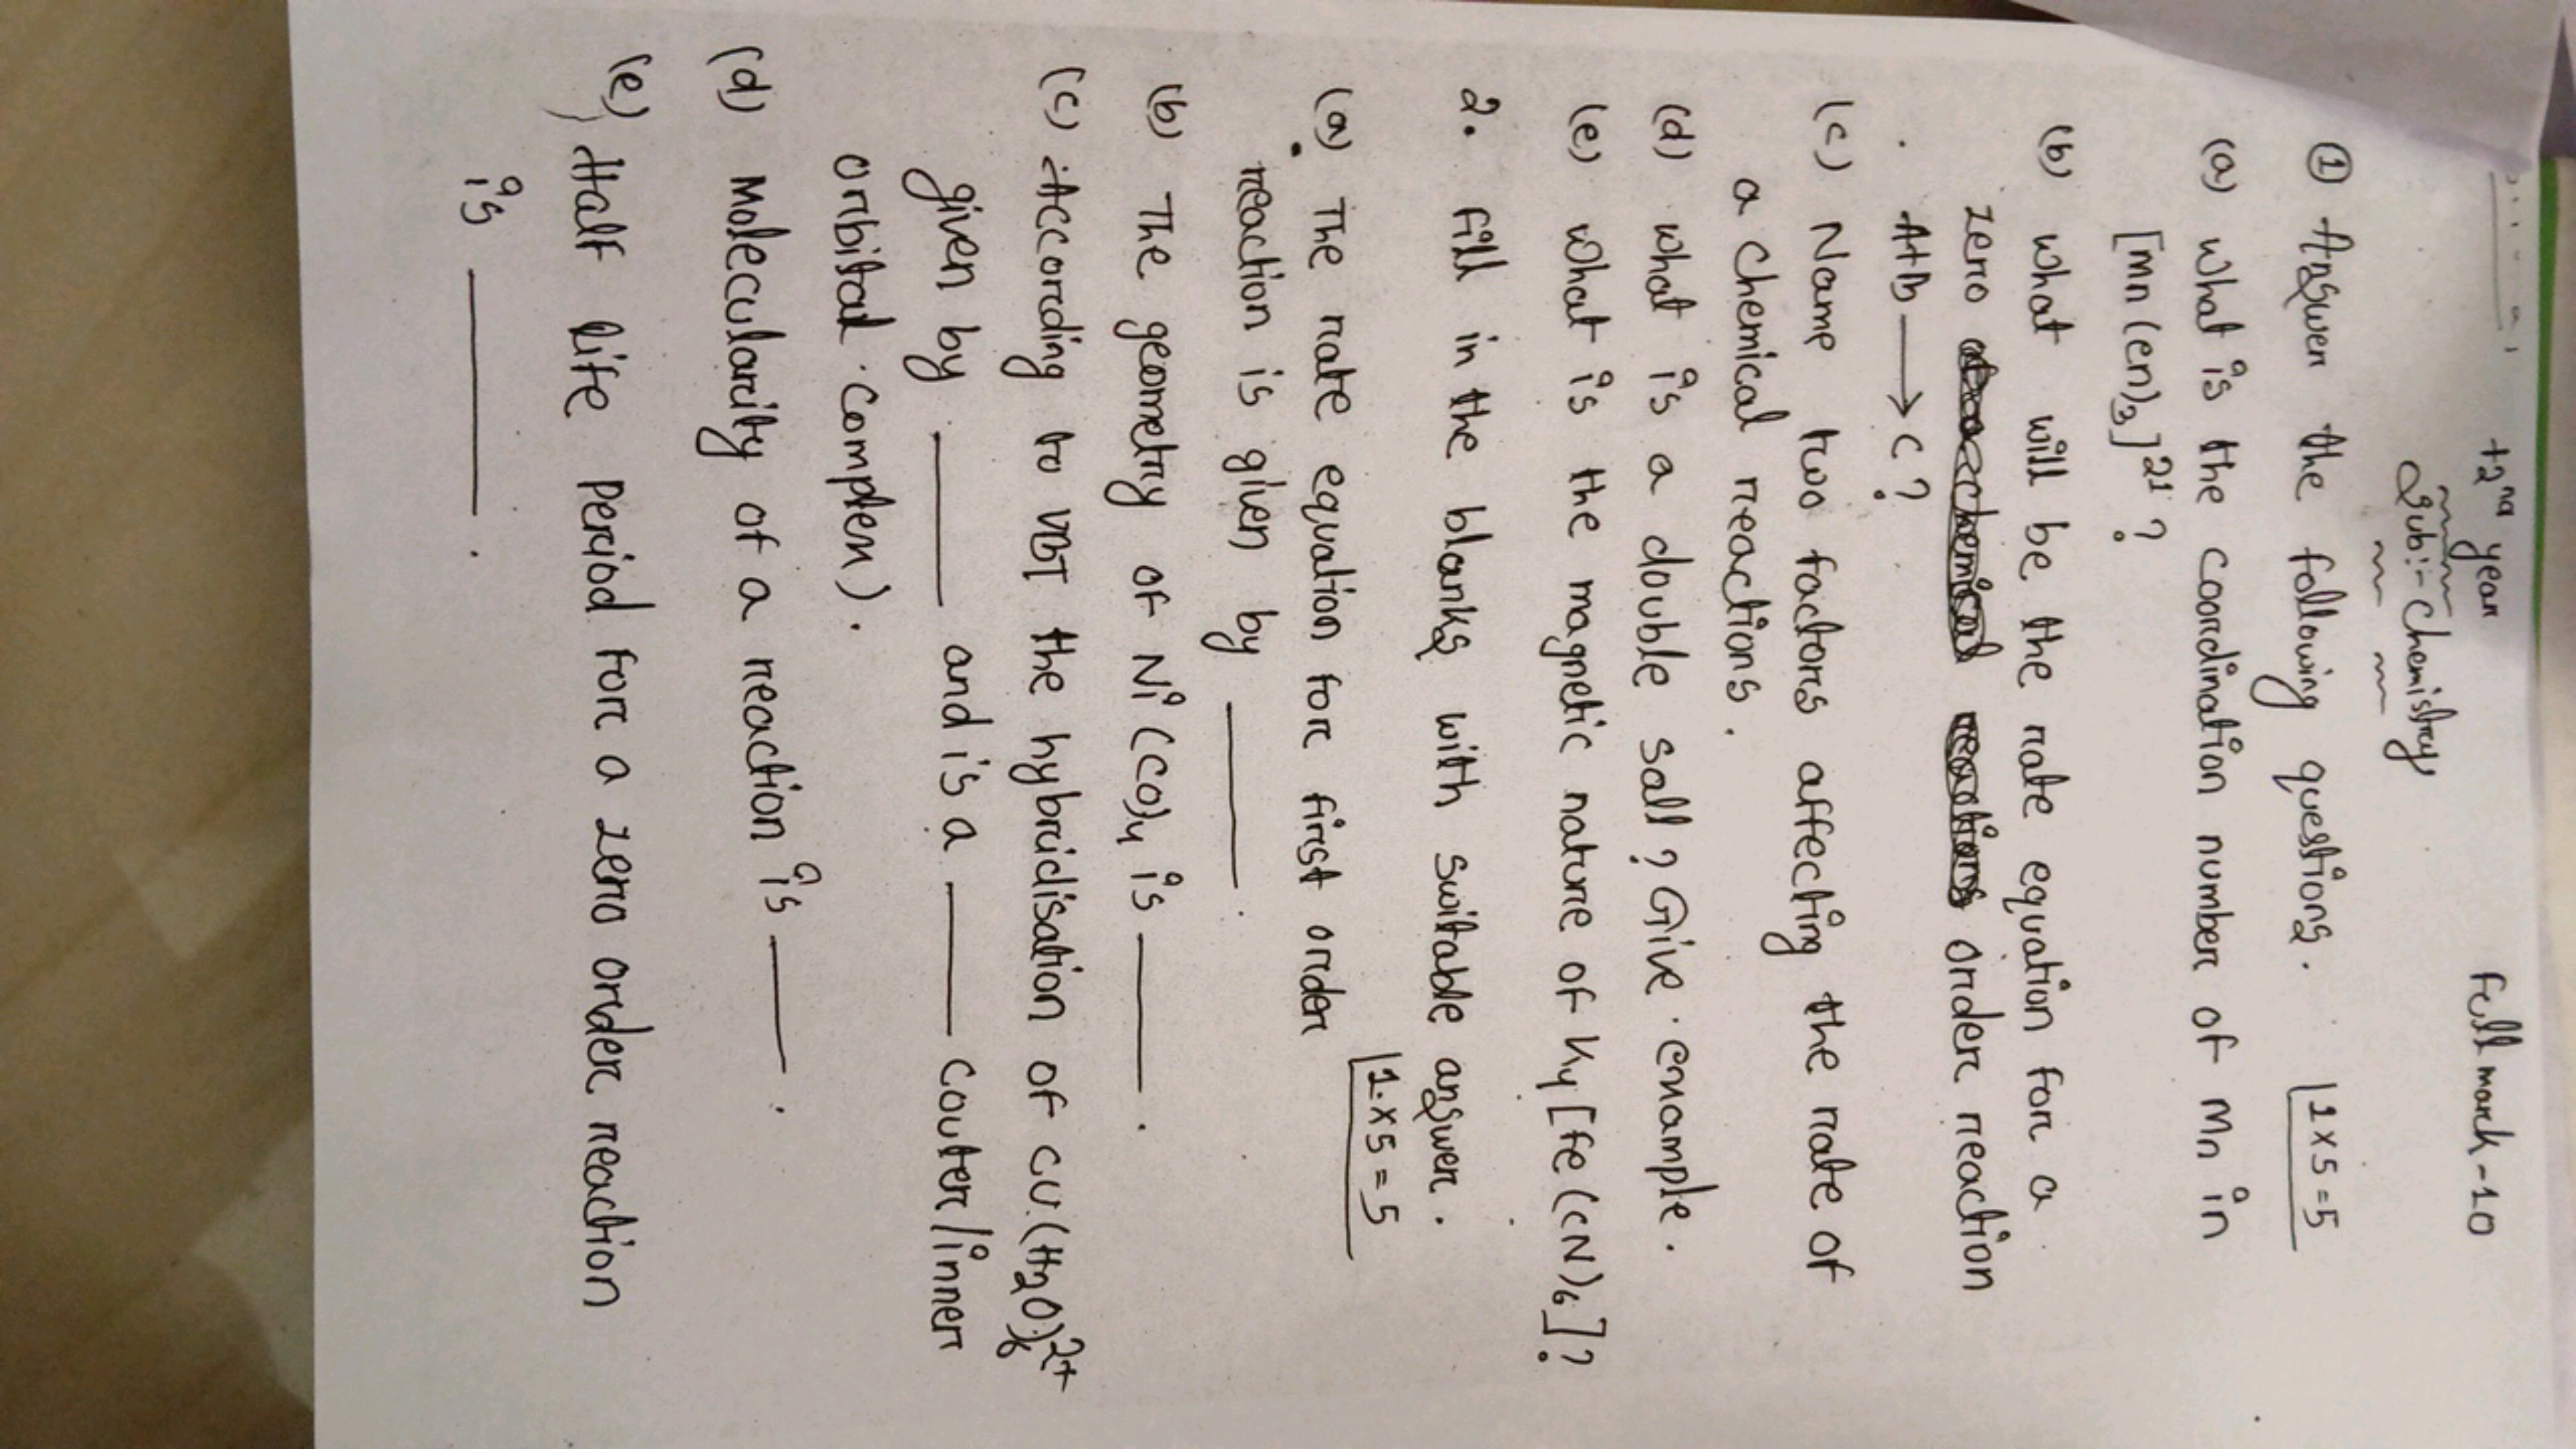 +2nd year
Full mark-10
Sub:- Chemistry
① Answer the following questions. 1×5=5
(a) what is the coordination number of Mn in
[Mn(en)3]2+?
(b) what will be the rate equation for a
zero order reaction
A+B ⟶ C?
(c) Name two factors affecting the rate of
a chemical reactions.
(d) what is a double salt? Give example.
(e) what is the magnetic nature of K4[Fe(CN)6]?
2. Fill in the blanks with suitable answer.
1×5=5
(a) The rate equation for first order
reaction is given by ____.
(b) The geometry of Ni(CO)4 is ____.
(c) According to VBT the hybridisation of Cu(H2O)6 2+
given by ____ and is a ____ (outer/inner
orbital complex).
(d) Molecularity of a reaction is ____.
(e) Half life period for a zero order reaction
is ____.